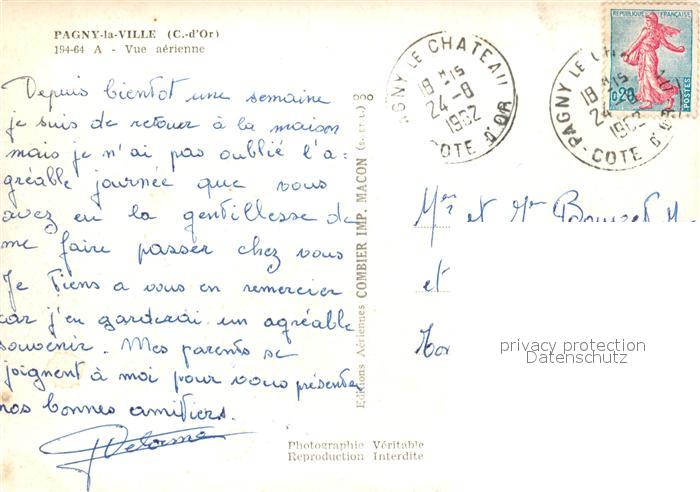 PAGNY-la-VILLE (C.-d'Or)
194-64 A - Vue aérienne
Depuis bientot une semaine
je suis de retour à la maison
mais je n'ai pas oublié l'a=
gréable journée que vous
avez eu la gentillesse de
me faire passer chez vous
Je tiens a vous en remercier
car j'en garderai un agréable
souvenir. Mes parents se
joignent à moi pour vous présenter
nos bonnes amitiers.
Delorme
Editions Aériennes COMBIER IMP. MACON (S.-et-L.)
Photographie Véritable
Reproduction Interdite
AGNY LE CHATEAU
18 H 15
24-8
1962
COTE D'OR
PAGNY LE CHATEAU
18 H 15
24-8
1962
COTE D'OR
REPUBLIQUE FRANÇAISE
0,20
POSTES
Mer et Mr
et
privacy protection
Datenschutz